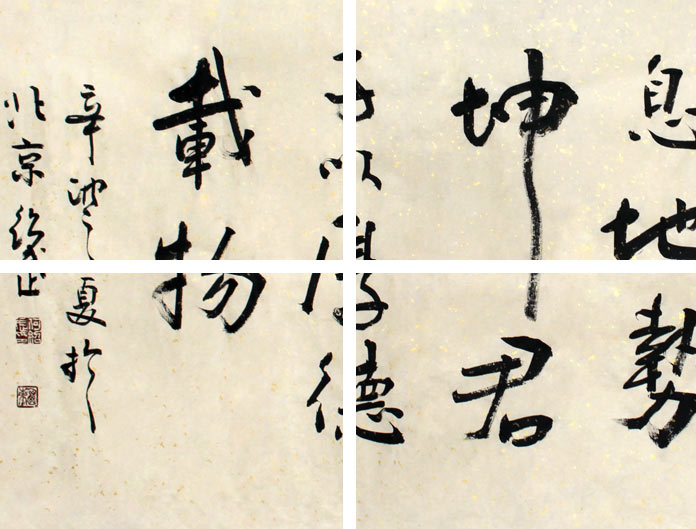 息地勢
坤君
子以厚德
載物
辛夏於
北京